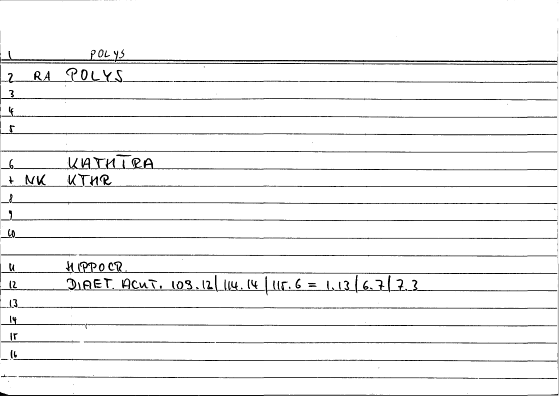 1 POLYS
2 RA POLYS
3
4
5
6 KATHTRA
7 NK KTHR
8
9
10
11 HIPPOCR.
12 DIAET. ACUT. 109.12|114.14|115.6 = 1.13|6.7|7.3
13
14
15
16